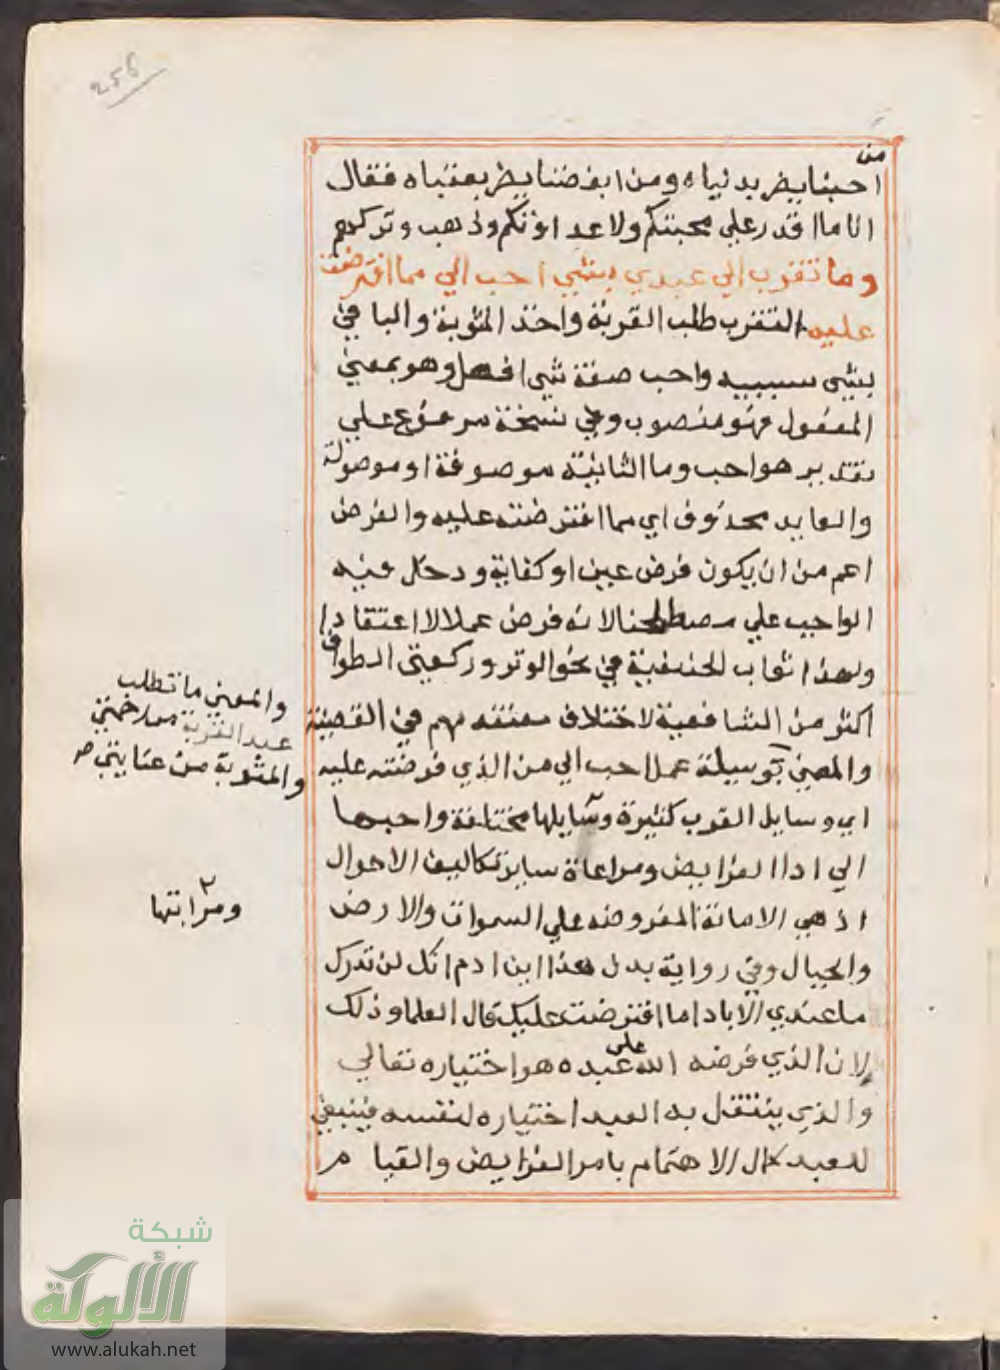 256
من
احبنا يضر بدنياه ومن ابغضنا يضر بعقباه فقال
انا ما اقدر علي محبتكم ولا عداوتكم وذهب وتركهم
وما تقرب الي عبدي بشيي احب الي مما افترضت
عليه التقرب طلب القربة واخذ المثوبة والبا في
بشيي سببيه واحب صفة شي افعل وهو بمعني
المفعول فهو منصوب وفي نسخة مرفوع علي
تقدير هو احب وما الثانية موصوفة او موصولة
والعايد محذوف اي مما افترضته عليه والفرض
اعم من ان يكون فرض عين او كفاية ودخل فيه
الواجب علي مصطلحنا لانه فرض عملا لا اعتقادا
ولهذا اثاب الحنفية في نحو الوتر وركعتي الطواف
اكثر من الشافعية لاختلاف معتقدهم في القضية
والمعني بوسيلة عملا احب الي من الذي فرضته عليه
اي وسايل القرب كثيرة وسايلها مختلفة واحبها
الي ادا الفرايض ومراعاة ساير تكاليف الاحوال
اذ هي الامانة المفروضه علي السموات والارض
والجبال وفي رواية بدل هذا ابن ادم انك لن تدرك
ما عندي الا بادا ما افترضت عليك قال العلما وذلك
لان الذي فرضه الله علي عبده هو اختياره تعالي
والذي يتنفل به العبد اختياره لنفسه فينبغي
للعبد كمال الاهتمام بامر الفرايض والقيام
والمعني ما تطلب
عبد القربة من رحمتي
والمثوبة من عنايتي صح
ومراتبها
شبكة
الألوكة
www.alukah.net